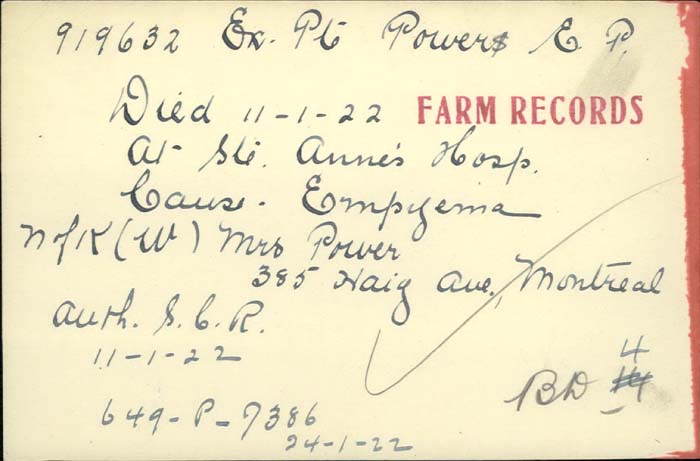 919632 Ex. Pte Power E. P.
Died 11-1-22 FARM RECORDS
At Ste. Anne's Hosp.
Cause. Empyema
N of K (W) Mrs Power
385 Haig Ave, Montreal
Auth. S.C.R.
11-1-22
4
BD
649-P-7386
24-1-22